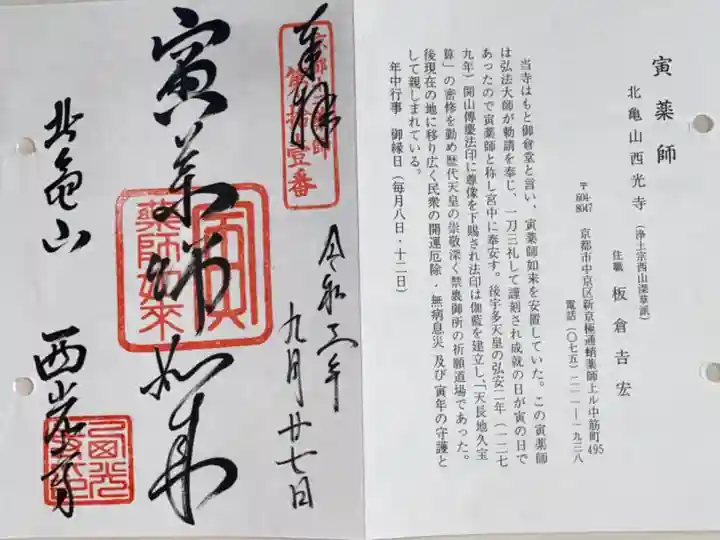 寅薬師
北亀山西光寺（浄土宗西山深草派）
住職 板倉吉宏
〒604-8047 京都市中京区新京極通蛸薬師上ル中筋町495
電話（〇七五）二一一－一九三八
当寺はもと御倉堂と言い、寅薬師如来を安置していた。この寅薬師
は弘法大師が勅請を奉じ、一刀三礼して謹刻され成就の日が寅の日で
あったので寅薬師と称し宮中に奉安す。後宇多天皇の弘安二年（一二七
九年）開山傳慶法印に尊像を下賜され法印は伽藍を建立し、「天長地久宝
算」の密修を勤め歴代天皇の崇敬深く禁裏御所の祈願道場であった。
後現在の地に移り広く民衆の開運厄除・無病息災及び寅年の守護と
して親しまれている。
年中行事 御縁日（毎月八日・十二日）
奉拝
京都十二薬師
第拾壱番
令和三年
九月廿七日
寅薬師如来
寅
薬師如来
北亀山 西光寺